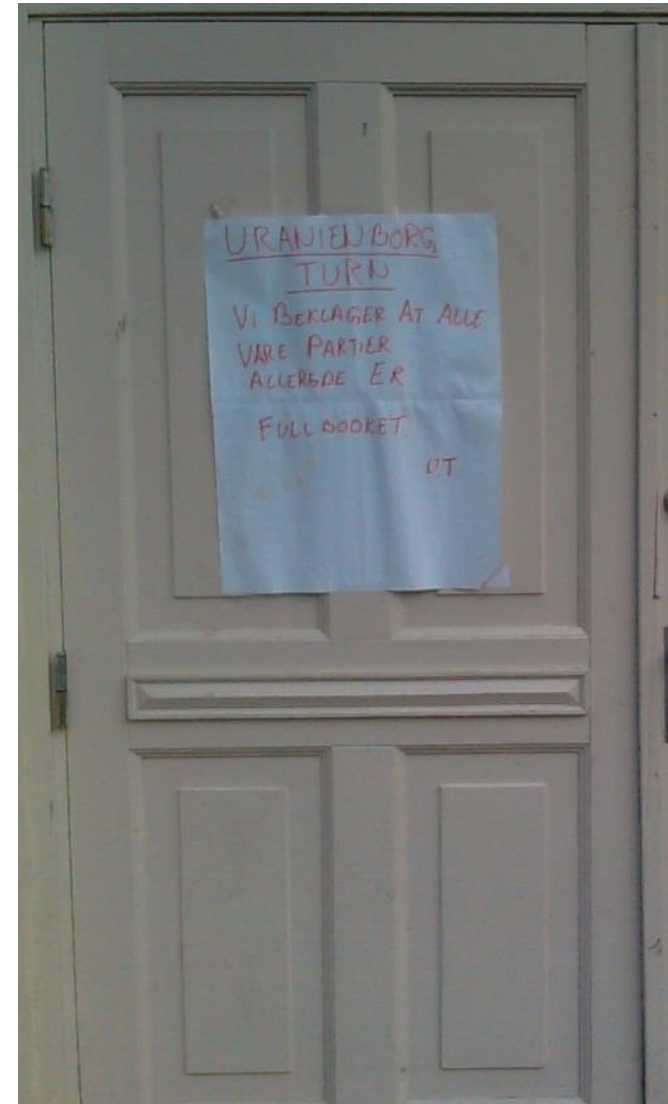 URANIENBORG
TURN
VI BEKLAGER AT ALLE
VARE PARTIER
ALLEREDE ER
FULLBOOKET
U.T.